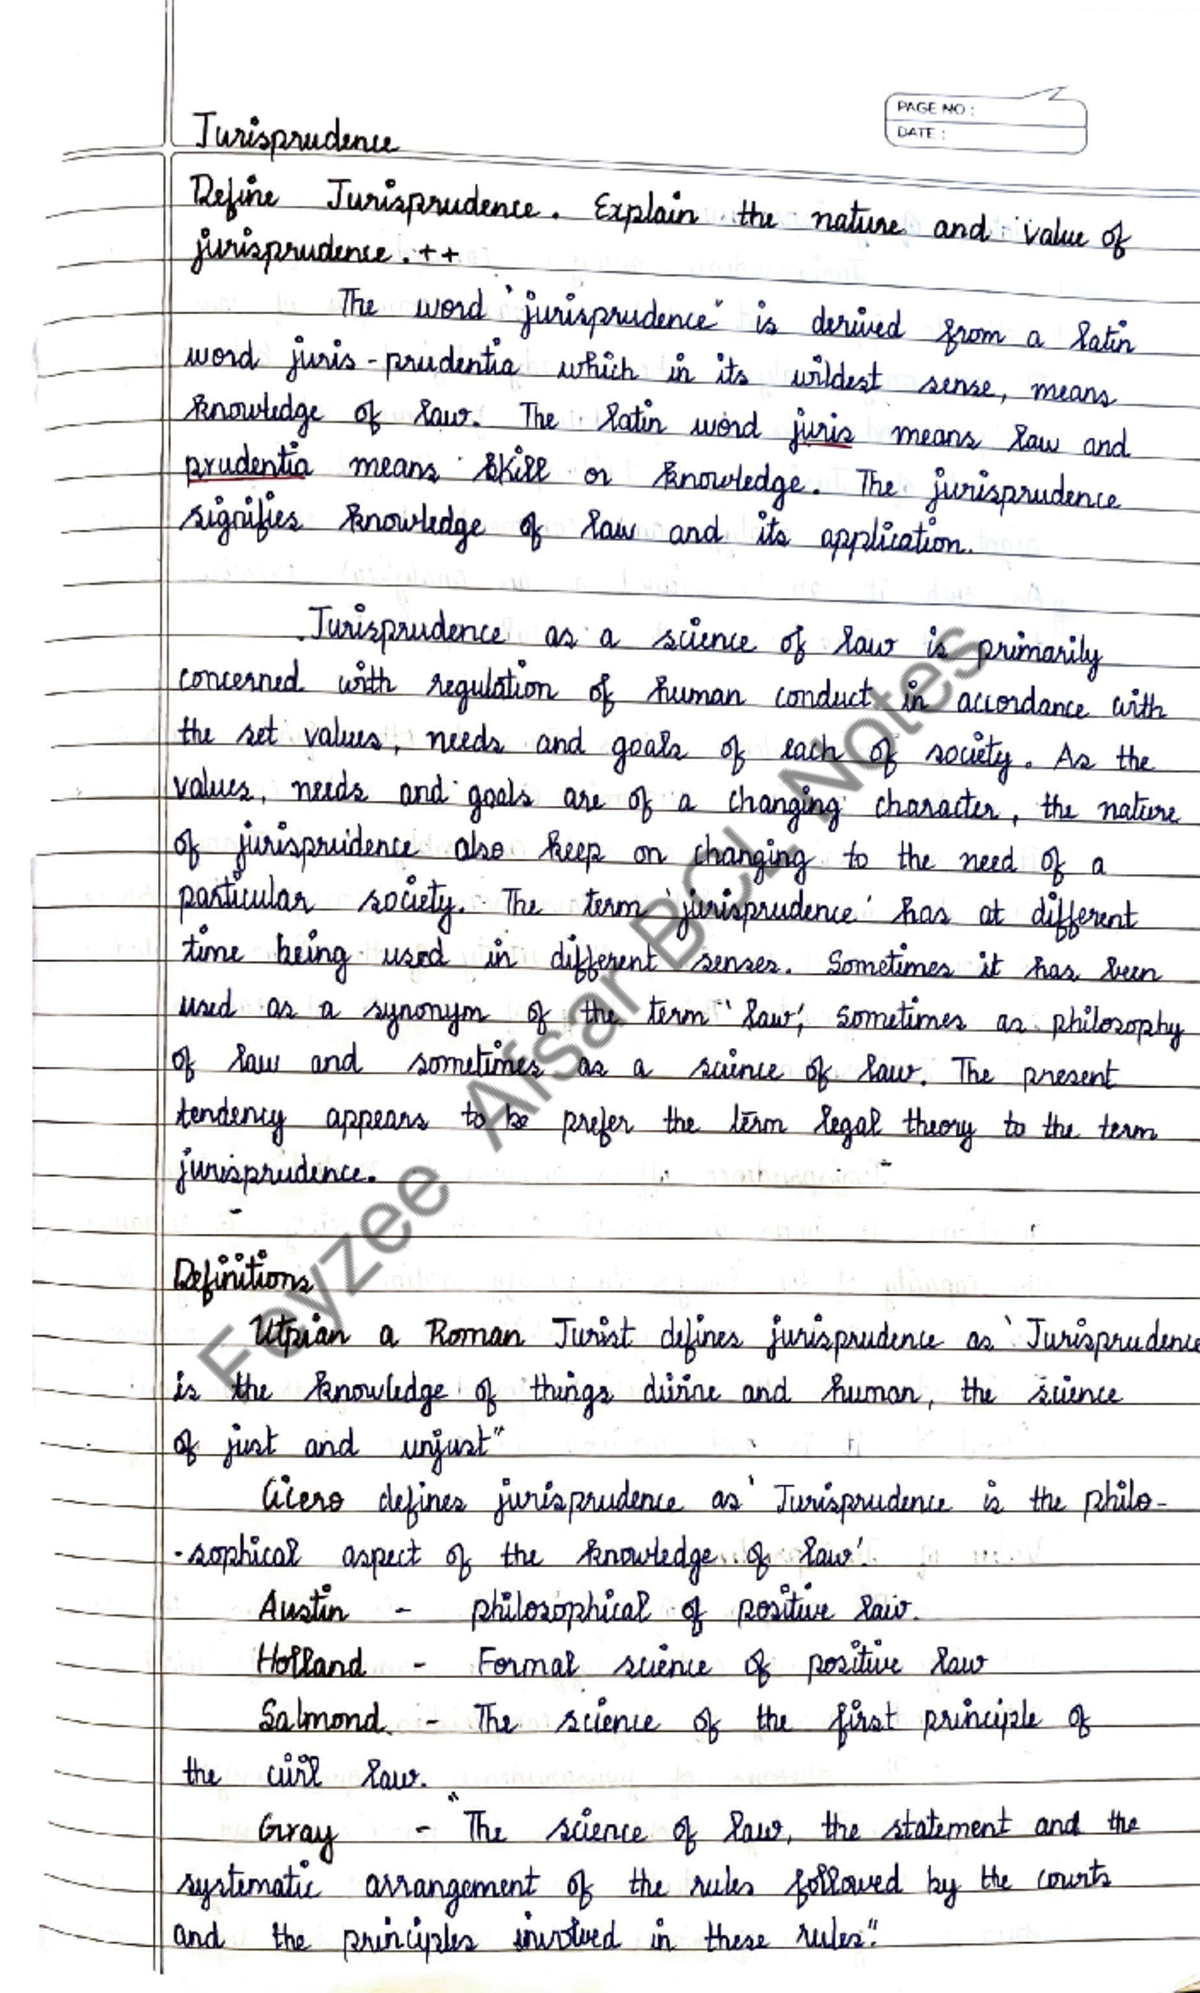 PAGE NO :
DATE :
Jurisprudence
Define Jurisprudence. Explain the nature and value of
jurisprudence.++
The word "jurisprudence" is derived from a latin
word juris-prudentia which in its wildest sense, means
knowledge of law. The latin word juris means law and
prudentia means skill or knowledge. The jurisprudence
signifies knowledge of law and its application.
Jurisprudence as a science of law is primarily
concerned with regulation of human conduct in accordance with
the set values, needs and goals of each of society. As the
values, needs and goals are of a changing character, the nature
of jurisprudence also keep on changing to the need of a
particular society. The term 'jurisprudence' has at different
time being used in different senses. Sometimes it has been
used as a synonym of the term 'law', sometimes as philosophy
of law and sometimes as a science of law. The present
tendency appears to be prefer the term legal theory to the term
jurisprudence.
Definitions
Utpian a Roman Jurist defines jurisprudence as 'Jurisprudence
is the knowledge of things divine and human, the science
of just and unjust"
Cicero defines jurisprudence as 'Jurisprudence is the philo-
-sophical aspect of the knowledge of law'
Austin - philosophical of positive law.
Holland - Formal science of positive law
Salmond - The science of the first principle of
the civil law.
Gray - "The science of law, the statement and the
systematic arrangement of the rules followed by the courts
and the principles involved in these rules."
Feyzee Afsar BCL Notes